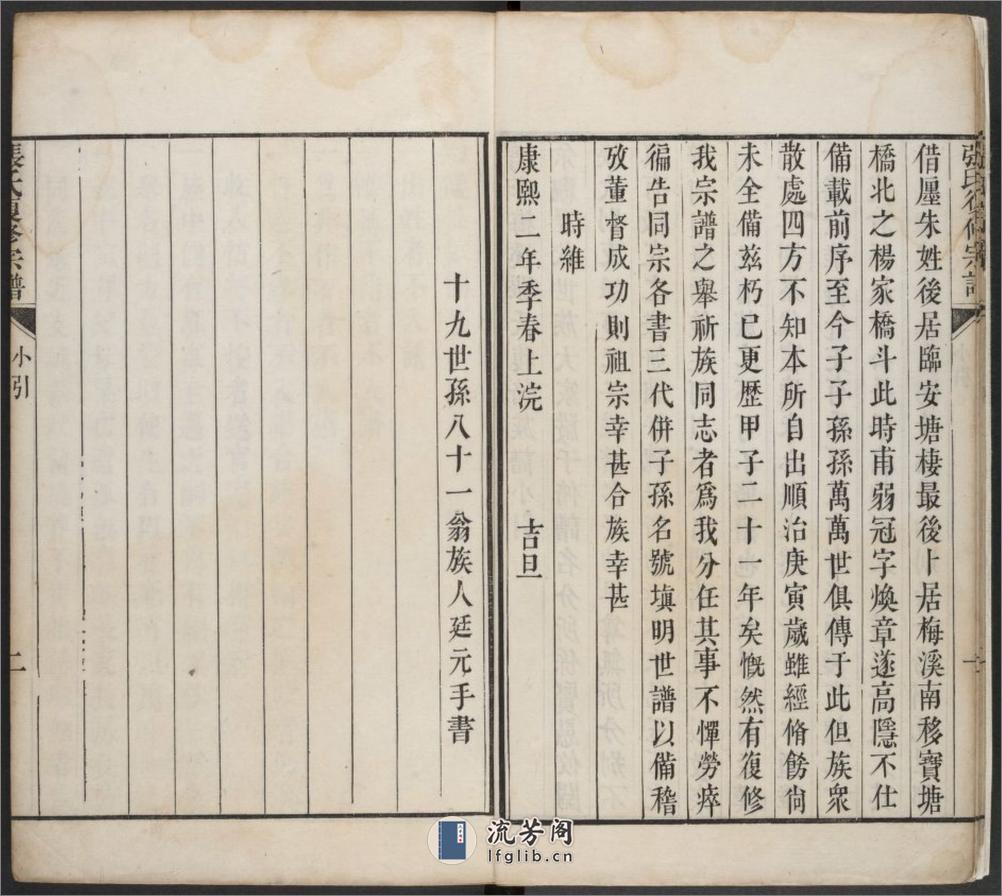 借廛朱姓後居臨安塘棲最後卜居梅溪南移寶塘
橋北之楊家橋斗此時甫弱冠字煥章遂高隱不仕
備載前序至今子子孫孫萬萬世俱傳于此但族衆
散處四方不知本所自出順治庚寅歲雖經脩餝尙
未全備茲朽已更歷甲子二十一年矣慨然有復修
我宗譜之舉祈族同志者爲我分任其事不憚勞瘁
徧告同宗各書三代併子孫名號塡明世譜以備稽
攷董督成功則祖宗幸甚合族幸甚
時維
康熙二年季春上浣 吉旦
十九世孫八十一翁族人廷元手書
張氏復修宗譜 小引 二
流芳阁
lfglib.cn